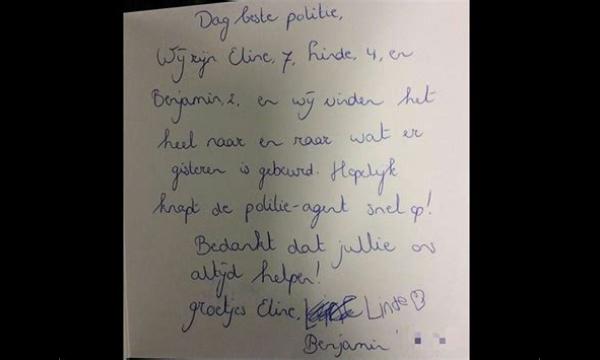 Dag beste politie,
Wij zijn Eline, 7, Linde, 4, en
Benjamin, 2, en wij vinden het
heel naar en raar wat er
gisteren is gebeurd. Hopelijk
knapt de politie-agent snel op!
Bedankt dat jullie ons
altijd helpen!
groetjes Eline, Linde
Benjamin